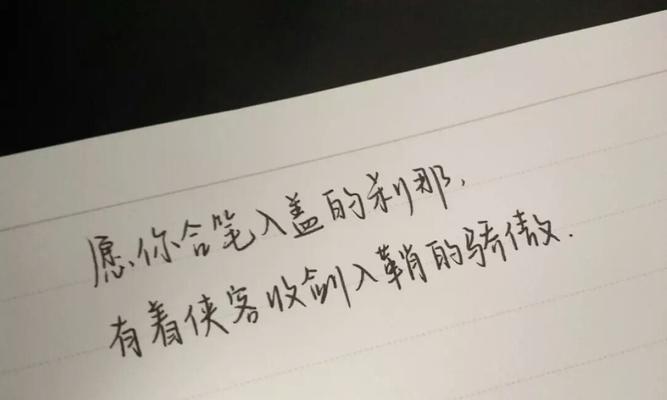 愿你合笔入盖的刹那,
有着侠客收剑入鞘的骄傲.